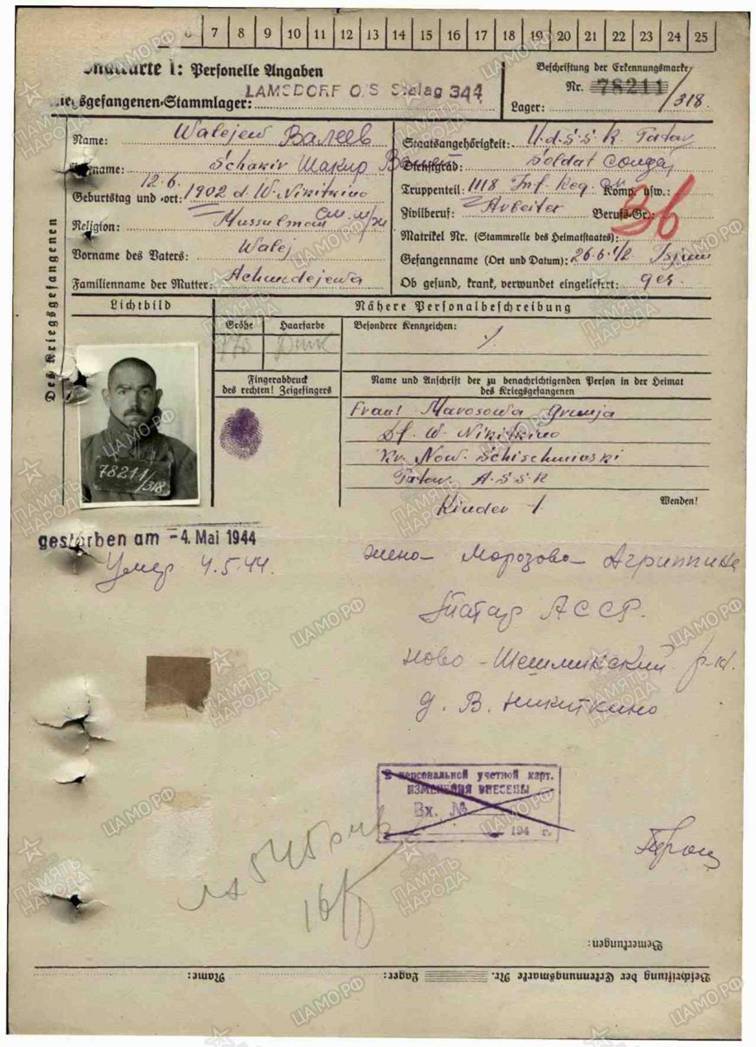 6 7 8 9 10 11 12 13 14 15 16 17 18 19 20 21 22 23 24 25
Personelle Angaben
LAMSDORF O/S Stalag 344
Kriegsgefangenen-Stammlager:
Beschriftung der Erkennungsmarke
Nr. 78211/318.
Lager:
Des Kriegsgefangenen
Name: Walejew Валеев
Vorname: Schakir Шакир
Geburtstag und -ort: 12.6. 1902 d. W. Nikitkino
Religion: Mussulman
Vorname des Vaters: Walej
Familienname der Mutter: Achundejewa
Staatsangehörigkeit: U.d.S.S.R. Tatar
Dienstgrad: Soldat
Truppenteil: 1118 Inf. Reg. Komp. usw.:
Zivilberuf: Arbeiter Berufs-Gr.:
3b
Matrikel Nr. (Stammrolle des Heimatstaates):
Gefangenname (Ort und Datum): 26.6.42 Isjum
Ob gesund, krank, verwundet eingeliefert: ges.
Lichtbild
78211/318
Größe Haarfarbe
173
Fingerabdruck
des rechten! Zeigefingers
Nähere Personalbeschreibung
Besondere Kennzeichen:
Name und Anschrift der zu benachrichtigenden Person in der Heimat
des Kriegsgefangenen
Frau: Marosowa Grunja
Df. W. Nikitkino
Now. Schischminski
Tatar. A.S.S.R
Kinder 1
Wenden!
gestorben am -4. Mai 1944
Умер 4.5.44.
жена Морозова Агриппина
Татар АССР.
Ново-Шешминский р-н.
д. В. Никиткино
В персональной учетной карт.
ИЗМЕНЕНИЯ ВНЕСЕНЫ
Вх. №
194 г.
Bemerkungen:
Beschriftung der Erkennungsmarke Nr. Lager: Name:
ЦАМО.РФ
ПАМЯТЬ
НАРОДА